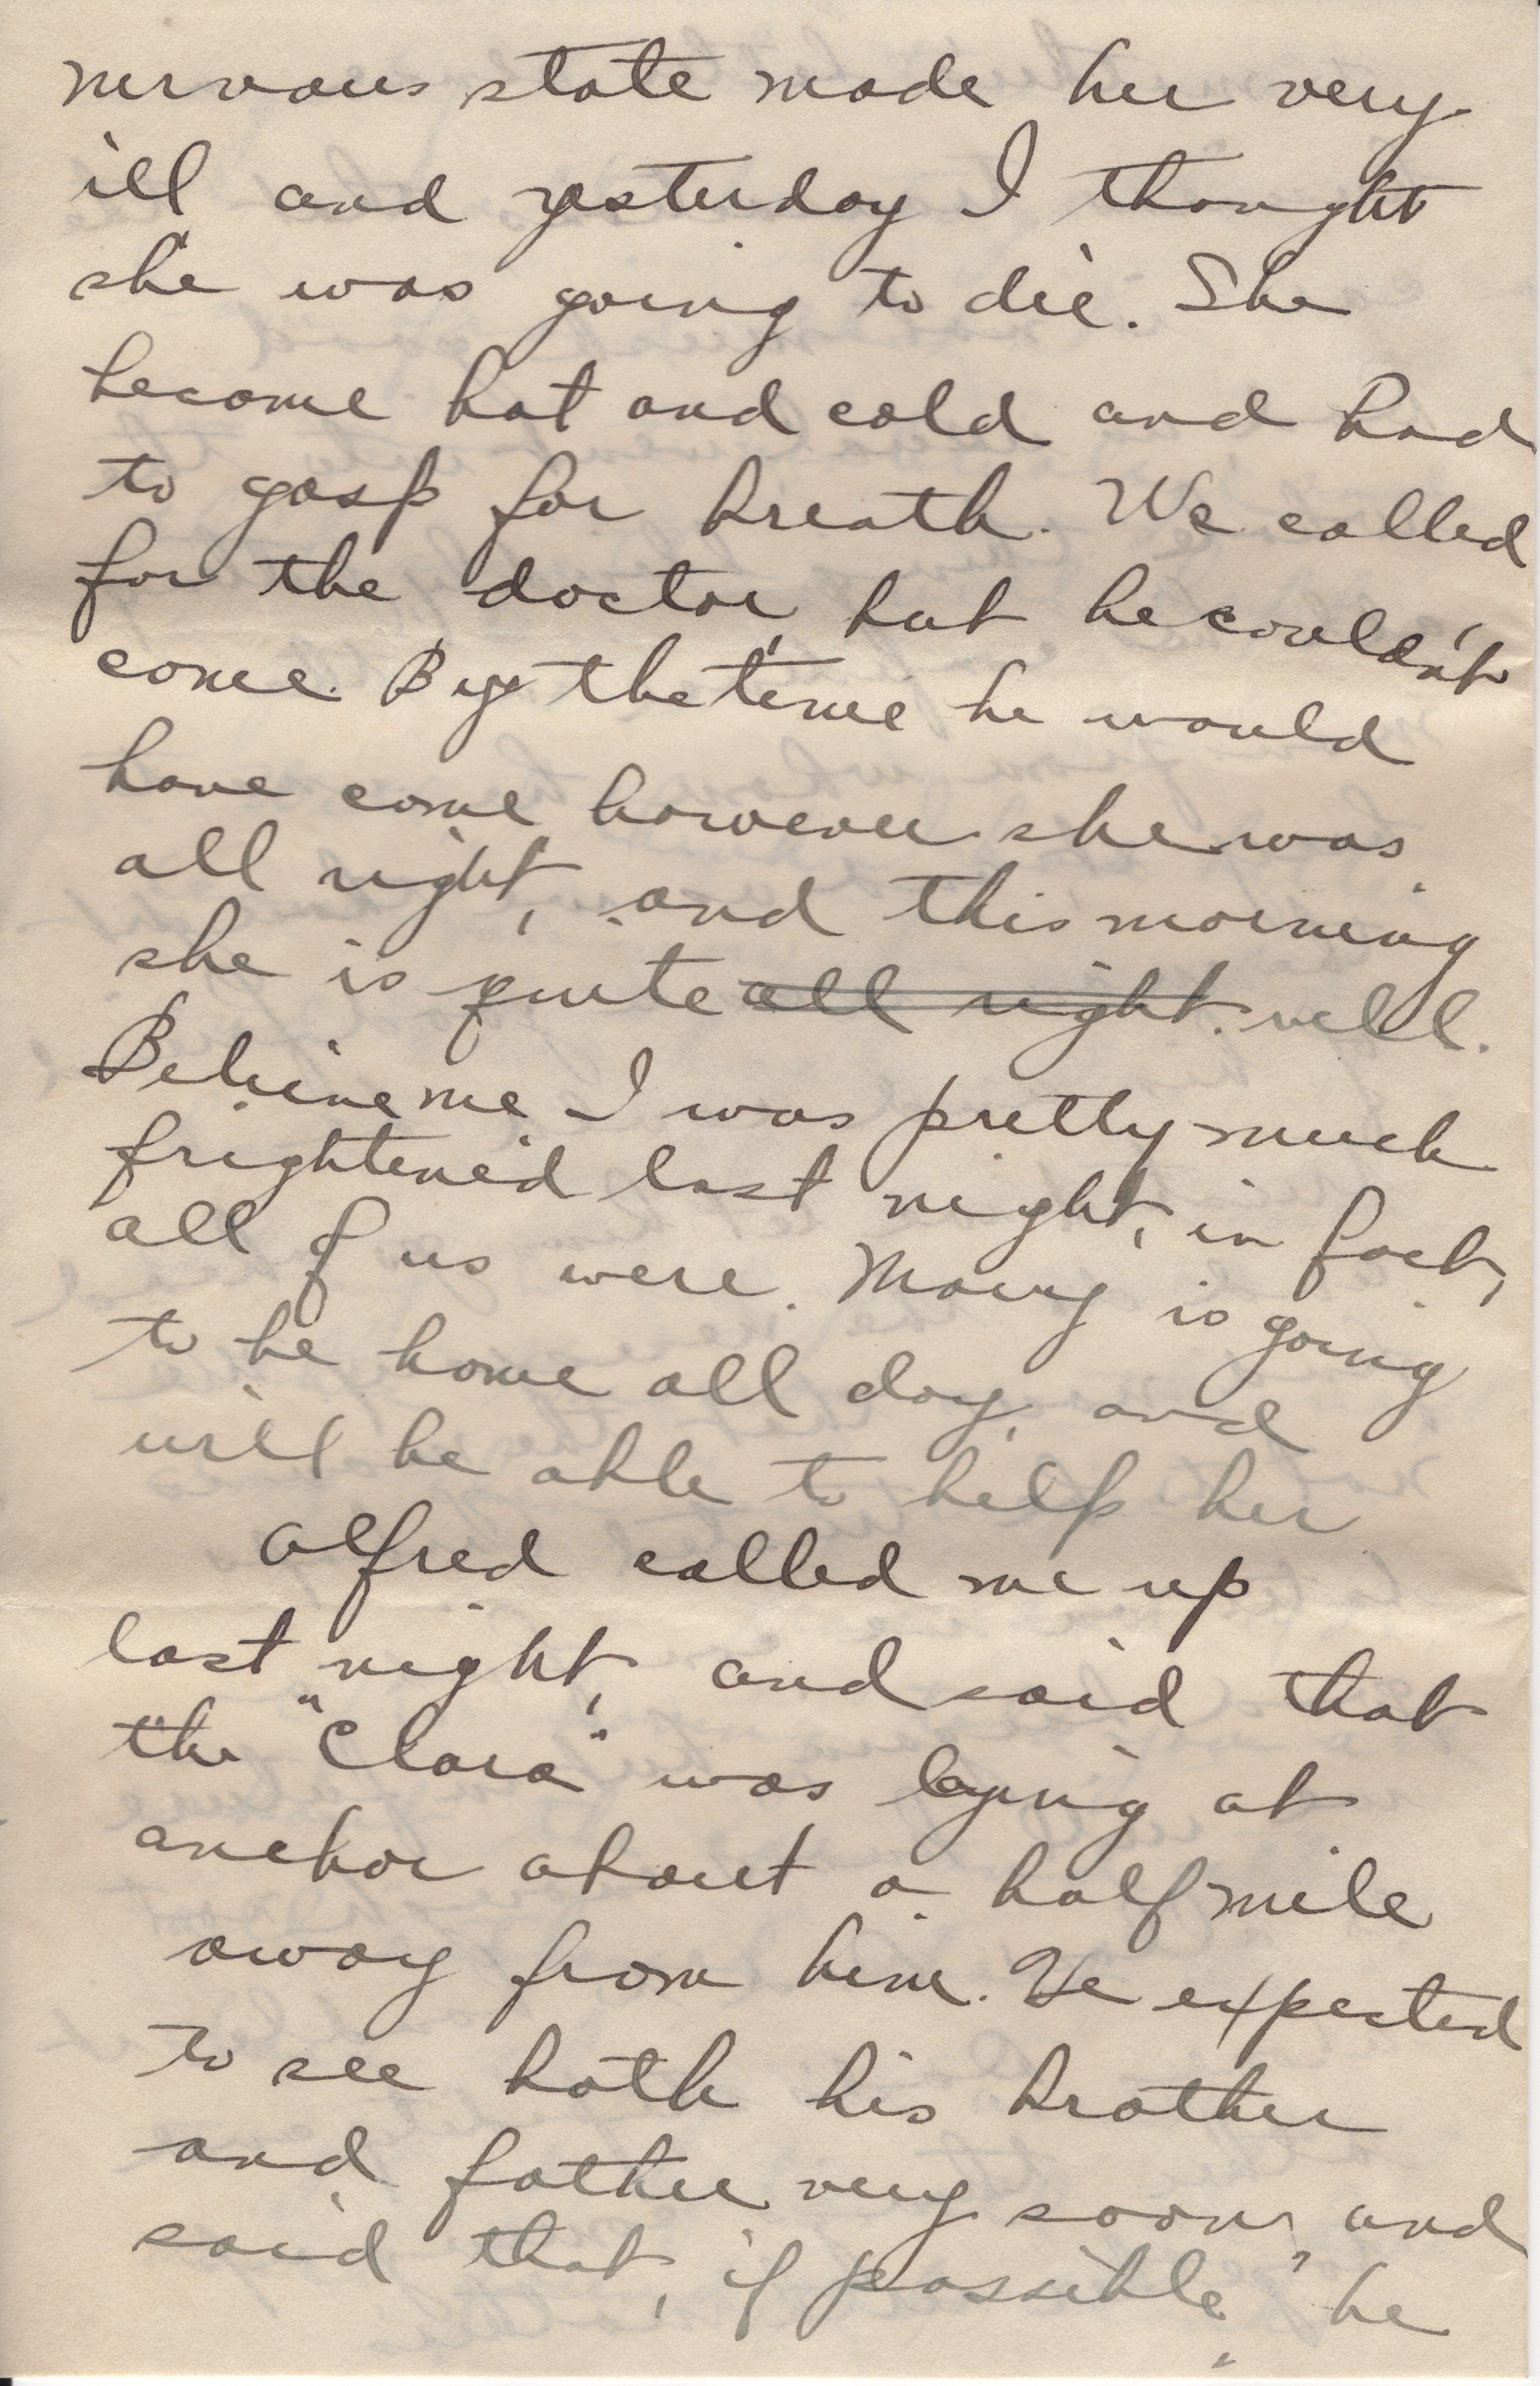 nervous state made her very
ill and yesterday I thought
she was going to die. She
become hot and cold and had
to gasp for breath. We called
for the doctor, but he couldn't
come. By the time he would
have come however she was
all right, and this morning
she is quite all right. well.
Believe me I was pretty much
frightened last night, in fact,
all of us were. Mary is going
to be home all day, and
will be able to help her
Alfred called me up
last night, and said that
the "Clara" was lying at
anchor about a half mile
away from him. He expected
to see both his brother
and father very soon, and
said that, if possible, he